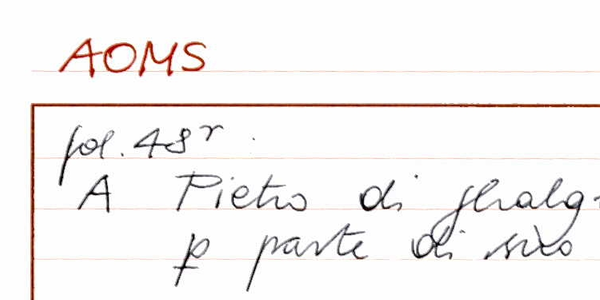 AOMS
fol. 48r.
A Pietro di ghalg
p parte di